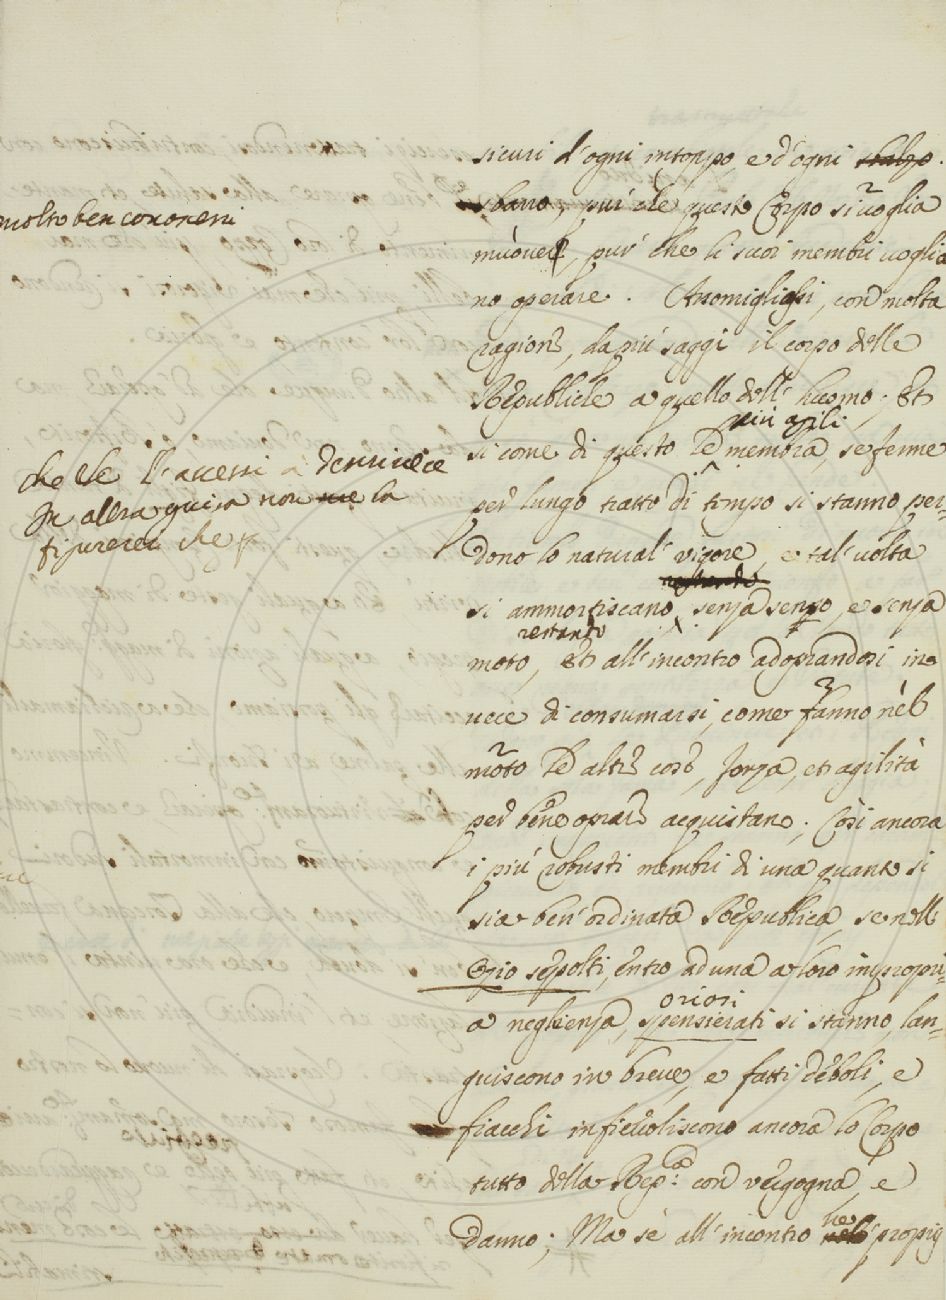 sicuri d'ogni intoppo, e d'ogni sbalzo.
molto ben cononerri
sbano, pur che questo Corpo si voglia
muover, pur che li suoi membri voglia
no operare. Assomigliasi, con molta
ragione, da più saggi il corpo delle
Republiche a quello dell' huomo; Et
più agili
si come di questo le membra, se ferme
che se l'avessi a descrivere
in altra guisa non me la
figurerei che
per lungo tratto di tempo si stanno per-
dono lo natural' vigore, e tal' volta
restando
si ammortiscano, senza senso, e senza
restando
moto, et all'incontro adoprandosi in
vece di consumarsi, come fanno nel
moto le altre cose, forza, et agilità
per bene oprare acquistano; Così ancora
i più robusti membri di una quante si
sia ben' ordinata Republica, se nell'
Ozio sepolti, entro ad una a loro impropri-
oziosi
a neghienza, spensierati si stanno, lan-
guiscono in breve, e fatti deboli, e
fiacchi infievoliscono ancora lo Corpo
tutto della Rep:ca con vergogna, e
danno; Ma se all'incontro ne' proprij